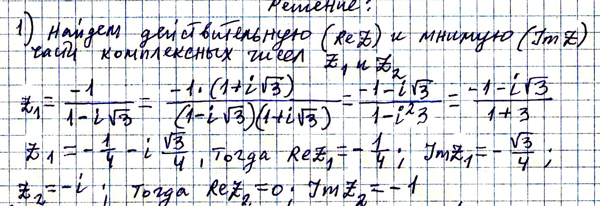 Решение:
1) Найдем действительную (Re Z) и мнимую (Im Z)
части комплексных чисел Z₁ и Z₂
Z₁ = -1/(1-i√3) = -1·(1+i√3)/((1-i√3)(1+i√3)) = (-1-i√3)/(1-i²3) = (-1-i√3)/(1+3)
Z₁ = -1/4 - i √3/4, Тогда Re Z₁ = -1/4; Im Z₁ = -√3/4;
Z₂ = -i; Тогда Re Z₂ = 0; Im Z₂ = -1